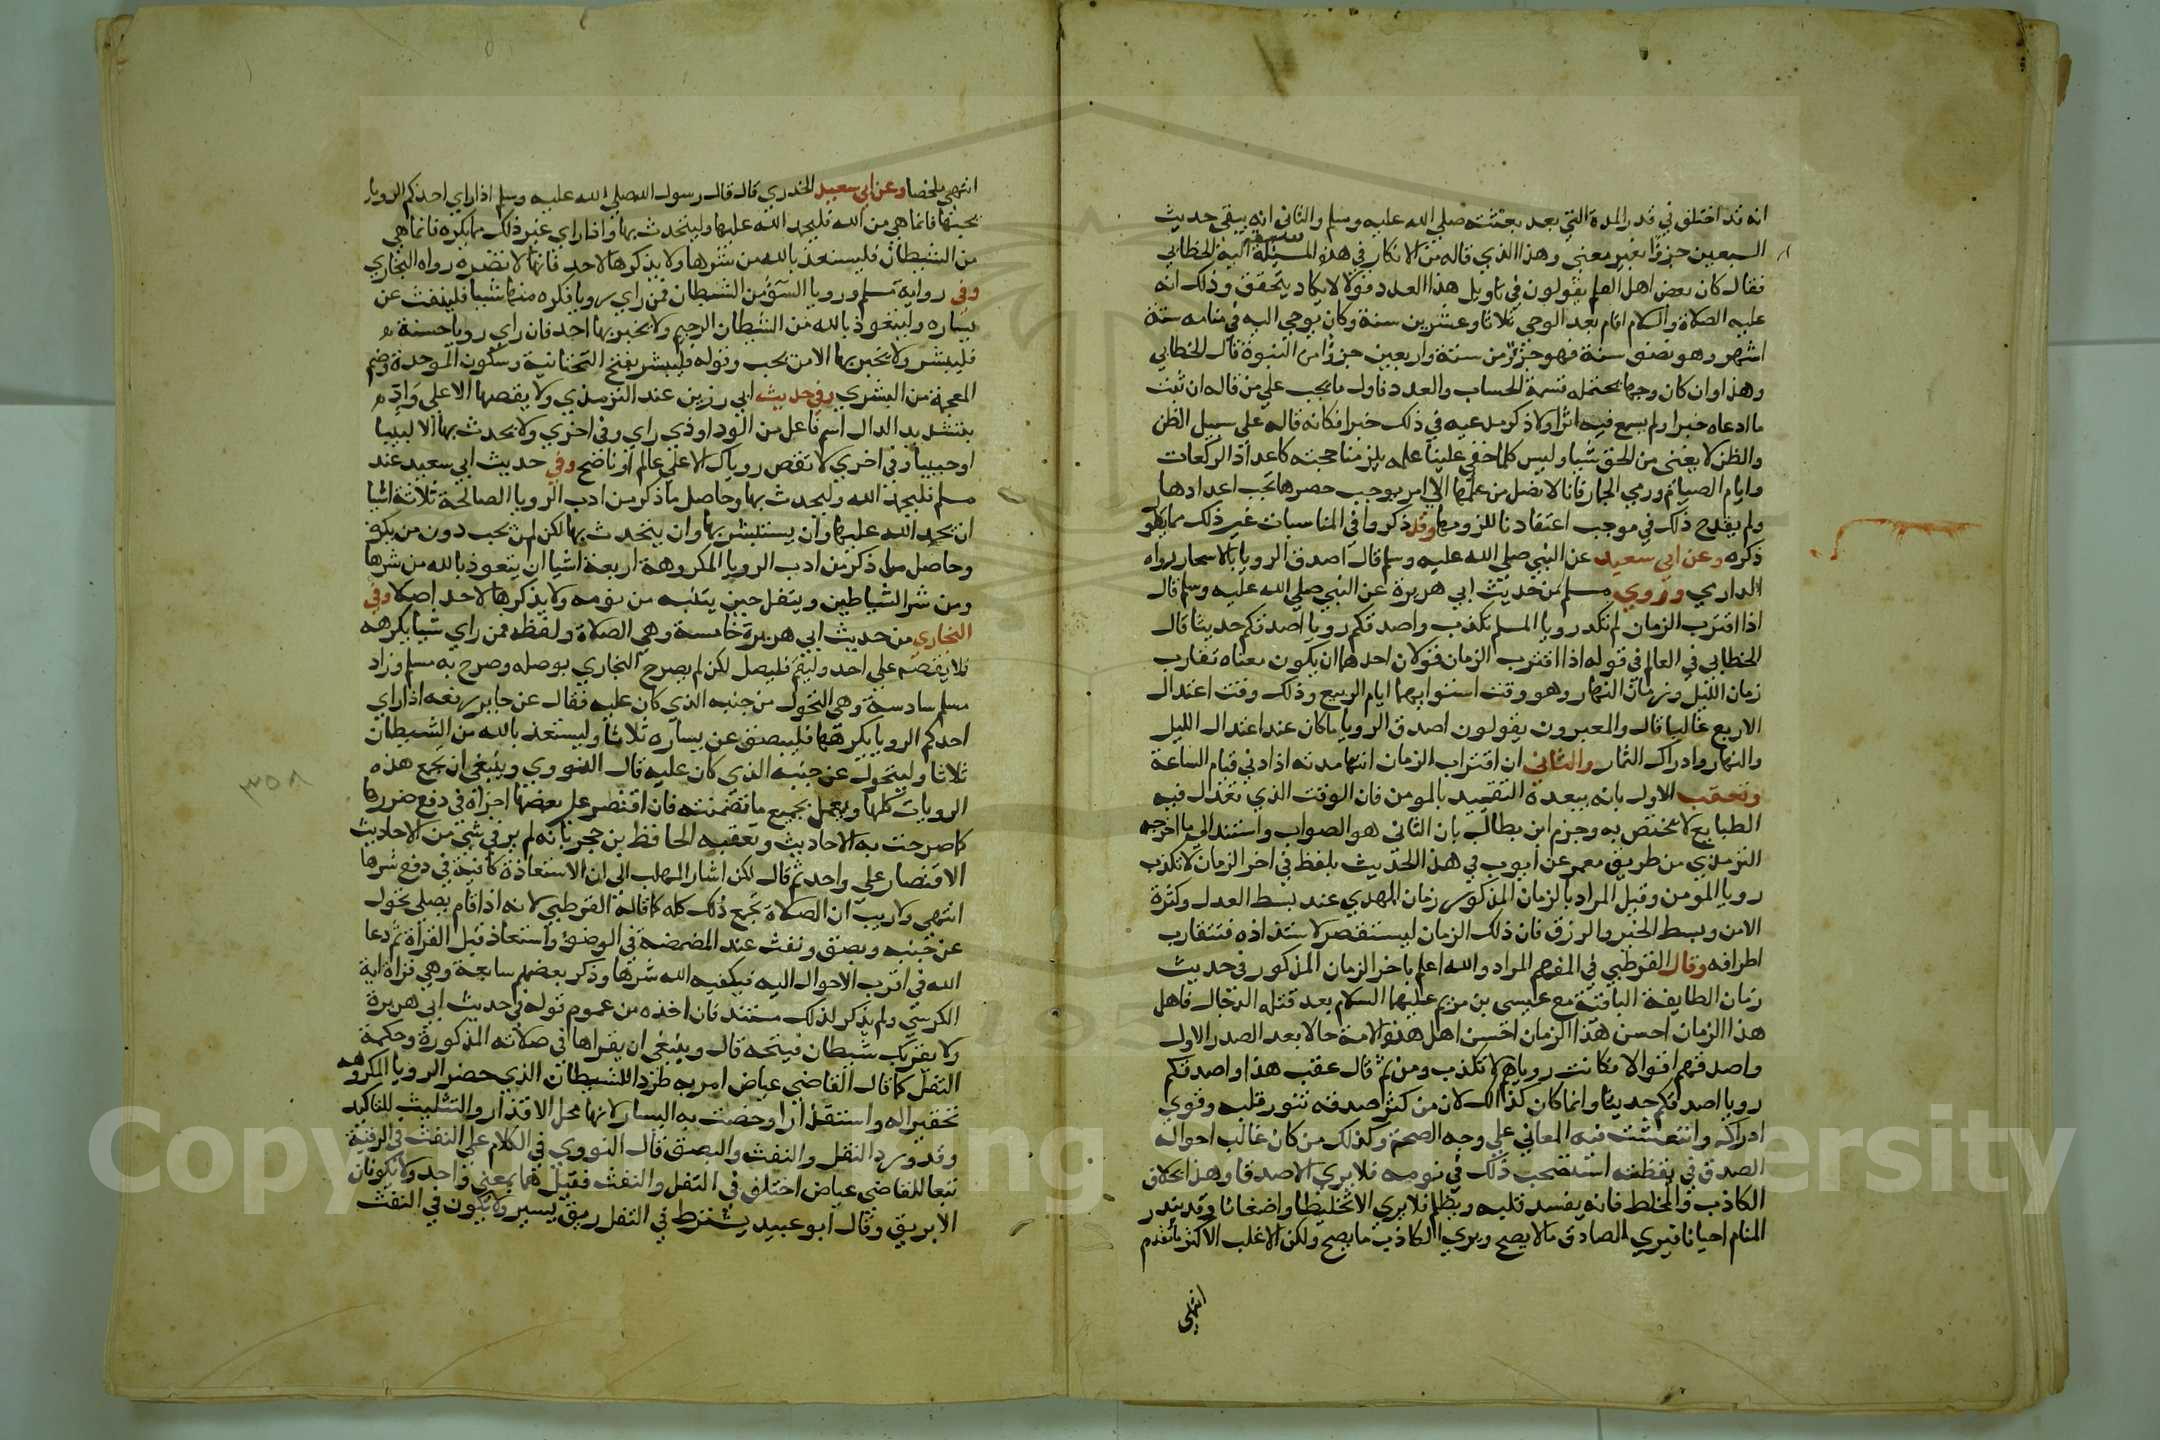 انه قد اختلف في قدر المدة التي بعد بعثته صلى الله عليه وسلم والثاني انه يبقى حديث
السبعين جزؤا بغير معنى وهذا الذي قاله من الانكار في هذه المسئلة سبقه اليه الخطابي
فقال كان بعض اهل العلم يقولون في تاويل هذا العدد قولا لا يكاد يتحقق وذلك انه
عليه الصلاة والسلام اقام بعد الوحي ثلاثا وعشرين سنة وكان يوحي اليه في منامه ستة
اشهر وهو نصف سنة فهو جزؤ من ستة واربعين جزؤا من النبوة قال الخطابي
وهذا وان كان وجها يحتمله قسمة الحساب والعدد فاول ما يجب علي من قاله ان يثبت
ما ادعاه خبرا ولم يسمع فيه اثرا ولا ذكر مدعيه في ذلك خبرا فكانه قاله على سبيل الظن
والظن لا يغني من الحق شيا وليس كلما خفي علينا علمه يلزمنا حجته كاعداد الركعات
وايام الصيام ورمي الجمار فانا لا نصل من علمها الي امر يوجب حصرها تحت اعدادها
ولم يقدح ذلك في موجب اعتقادنا للزومها وقد ذكروا في المناسبات غير ذلك مما يطول
ذكره وعن ابي سعيد عن النبي صلى الله عليه وسلم قال اصدق الرويا بالاسحار رواه
الدارمي وروي مسلم من حديث ابي هريرة عن النبي صلى الله عليه وسلم قال
اذا اقترب الزمان لم تكد رويا المسلم تكذب واصدقكم رويا اصدقكم حديثا قال
الخطابي في المعالم في قوله اذا اقترب الزمان قولان احدهما ان يكون معناه تقارب
زمان الليل وزمان النهار وهو وقت استوايهما ايام الربيع وذلك وقت اعتدال
الاربع غالبا قال والمعبرون يقولون اصدق الرويا ما كان عند اعتدال الليل
والنهار وادراك الثمار والثاني ان اقتراب الزمان انتها مدته اذا دني قيام الساعة
وتعقب الاول بانه يبعده التقييد بالمومن فان الوقت الذي تعتدل فيه
الطبايع لا يختص به وجزم ابن بطال بان الثاني هو الصواب واستند الي ما اخرجه
الترمذي من طريق معمر عن ايوب في هذا الحديث بلفظ في اخر الزمان لا تكذب
رويا المومن وقيل المراد بالزمان المذكور زمان المهدي عند بسط العدل وكثرة
الامن وبسط الخير والرزق فان ذلك الزمان ليستقصر لاستلذاذه فتتقارب
اطرافه وقال القرطبي في المفهم المراد والله اعلم باخر الزمان المذكور في حديث
زمان الطايفة الباقية مع عيسى بن مريم عليهما السلام بعد قتله الدجال فاهل
هذا الزمان احسن هذا الزمان احسن اهل هذه الامة حالا بعد الصدر الاول
واصدقهم اقوالا فكانت روياهم لا تكذب ومن ثم قال عقب هذا واصدقكم
رويا اصدقكم حديثا وانما كان كذالك لان من كثر صدقه تنور قلبه وقوي
ادراكه وانتعشت فيه المعاني علي وجه الصحة وكذلك من كان غالب احواله
الصدق في يقظته استصحب ذلك في نومه فلا يري الا صدقا وهذا بخلاف
الكاذب والمخلط فانه يفسد قلبه ويظلم فلا يري الا تخليطا واضغاثا وقد يندر
المنام احيانا فيري الصادق ما لا يصح ويري الكاذب ما يصح ولكن الاغلب الاكثر ما تقدم
انتهى
انتهي ملخصا وعن ابي سعيد الخدري قال قال رسول الله صلى الله عليه وسلم اذا راي احدكم الرويا
يحبها فانما هي من الله فليحمد الله عليها وليتحدث بها واذا راي غير ذلك مما يكره فانما هي
من الشيطان فليستعذ بالله من شرها ولا يذكرها لاحد فانها لا تضره رواه البخاري
وفي رواية مسلم ورويا السوء من الشيطان فمن راي رويا فكره منها شيا فلينفث عن
يساره وليتعوذ بالله من الشيطان الرجيم ولا يخبر بها احد فان راي رويا حسنة
فليبشر ولا يخبر بها الا من يحب وقوله فليبشر بفتح التحتانية وسكون الموحدة وضم
المعجمة من البشري وفي حديث ابي رزين عند الترمذي ولا يقصها الا علي واد
بتشديد الدال اسم فاعل من الود او ذي راي وفي اخري ولا يحدث بها الا لبيبا
او حبيبا وفي اخري لا تقص روياك الا علي عالم او ناصح وفي حديث ابي سعيد عند
مسلم فليحمد الله وليحدث بها وحاصل ما ذكر من ادب الرويا الصالحة ثلاثة اشيا
ان يحمد الله عليها وان يستبشر بها وان يتحدث بها لكن لمن يحب دون من يكره
وحاصل ما ذكر من ادب الرويا المكروهة اربعة اشيا ان يتعوذ بالله من شرها
ومن شر الشياطين ويتفل حين يتنبه من نومه ولا يذكرها لاحد اصلا وفي
البخاري من حديث ابي هريرة خامسة وهي الصلاة ولفظه فمن راي شيا يكرهه
فلا يقصه علي احد وليقم فليصل لكن لم يصرح البخاري بوصله وصرح به مسلم وزاد
مسلم سادسة وهي التحول من جنبه الذي كان عليه فقال عن جابر رفعه اذا راي
احدكم الرويا يكرهها فليبصق عن يساره ثلاثا وليستعذ بالله من الشيطان
ثلاثا وليتحول عن جنبه الذي كان عليه قال النووي وينبغي ان يجمع هذه
الرويات كلها ويعمل بجميع ما تضمنته فان اقتصر علي بعضها اجزاه في دفع ضررها
كما صرحت به الاحاديث وتعقبه الحافظ بن حجر بانه لم ير في شئ من الاحاديث
الاقتصار علي واحد ثم قال لكن اشار المهلب الي ان الاستعاذة كافية في دفع شرها
انتهي ولا ريب ان الصلاة تجمع ذلك كله كما قاله القرطبي لانه اذا قام يصلي تحول
عن جنبه وبصق ونفث عند المضمضة في الوضوء واستعاذ قبل القراة ثم دعا
الله في اقرب الاحوال اليه فيكفيه الله شرها وذكر بعضهم سابعة وهي قراة اية
الكرسي ولم يذكر لذلك مستند فان اخذه من عموم قوله في حديث ابي هريرة
ولا يقربك شيطان فيتجه قال وينبغي ان يقراها في صلاته المذكورة وحكمة
التفل كما قال القاضي عياض امر به طردا للشيطان الذي حضر الرويا المكروهة
تحقيرا له واستقذارا وخصت به اليسار لانها محل الاقذار والتثليث للتاكيد
وقد ورد التفل والنفث والبصق قال النووي في الكلام علي النفث في الرقية
تبعا للقاضي عياض اختلف في التفل والنفث فقيل هما بمعني واحد ولا يكونان
الا بريق وقال ابو عبيد يشترط في التفل ريق يسير ولا يكون في النفث
٣٥٨
Copyright © King Saud University